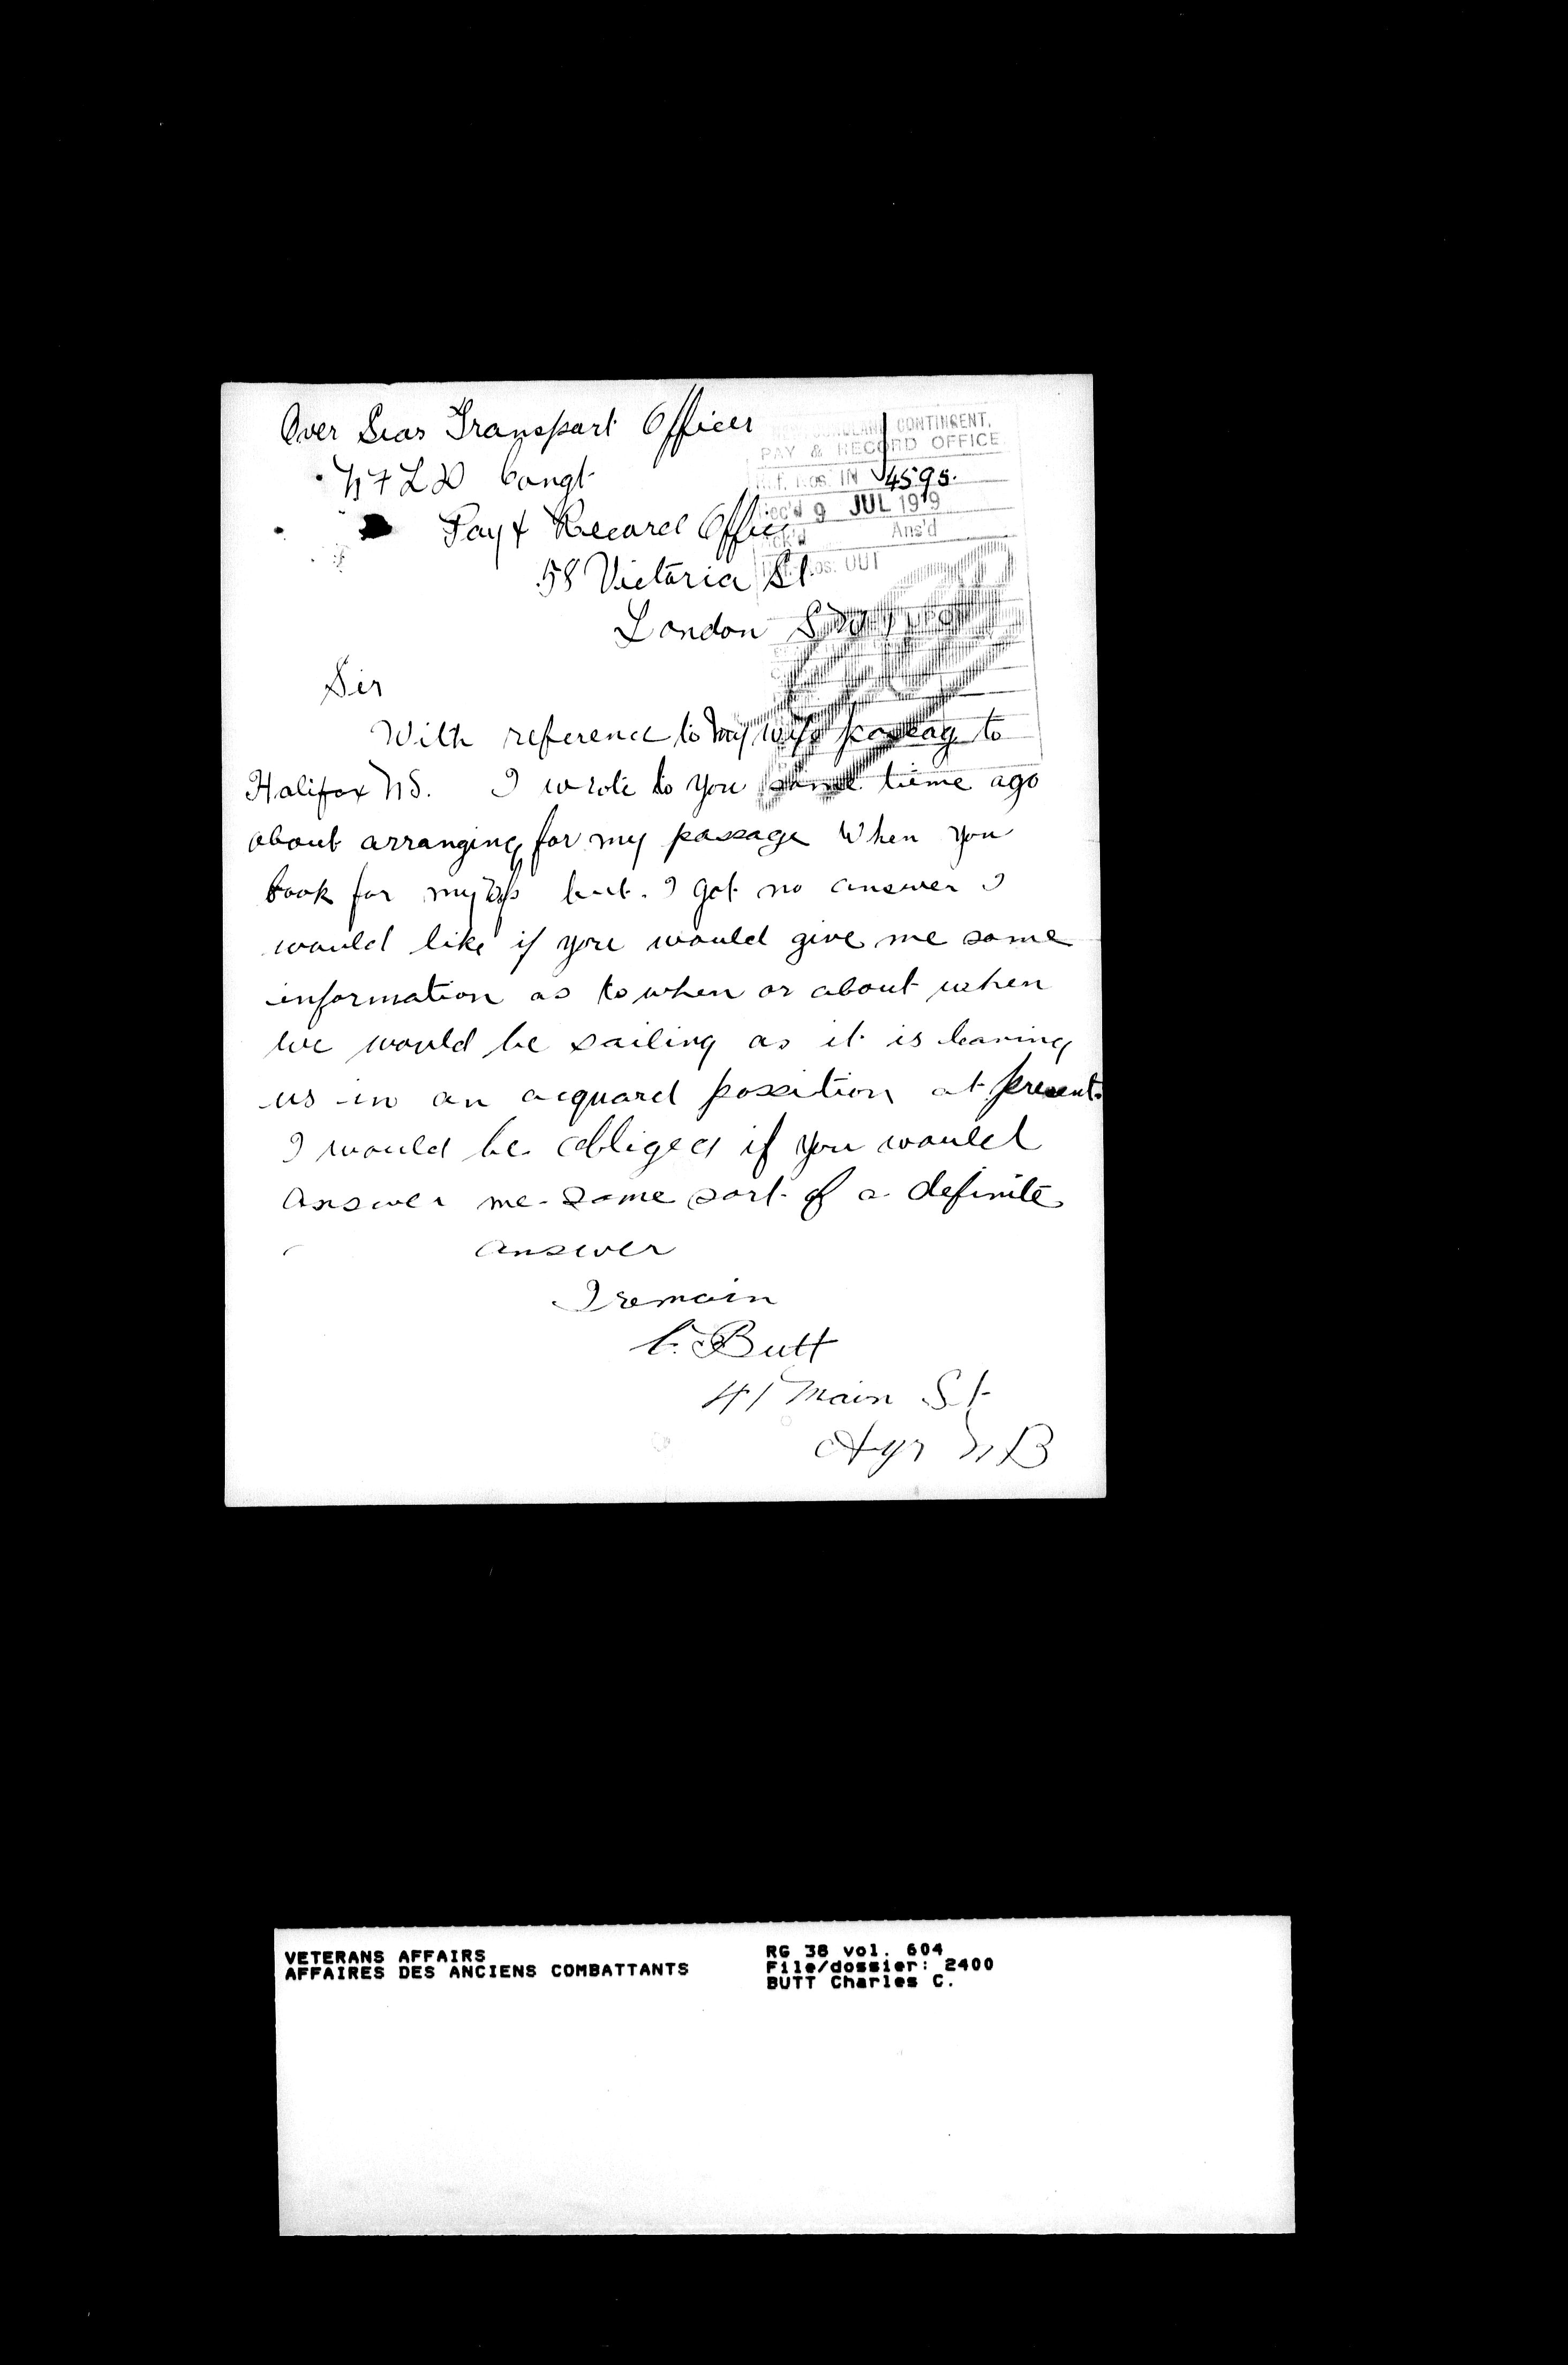 Over Seas Transport Officer
NFLD Congt
Pay & Record Office
58 Victoria St
London
NEWFOUNDLAND CONTINGENT,
PAY & RECORD OFFICE
Ref. Nos. IN 4595.
Rec'd 9 JUL 1919
Ack'd Ans'd
Ref. Nos. OUT
Sir
With reference to my wife passag to
Halifax NS. I wrote to you some time ago
about arranging for my passage When you
book for my wife but. I got no answer I
would like if you would give me some
information as to when or about when
we would be sailing as it is leaving
us in an acquard possition at present.
I would be obliged if you would
answer me some sort of a definite
answer
I remain
C. Butt
41 Main St
Ayr NB
VETERANS AFFAIRS
AFFAIRES DES ANCIENS COMBATTANTS
RG 38 vol. 604
File/dossier: 2400
BUTT Charles C.